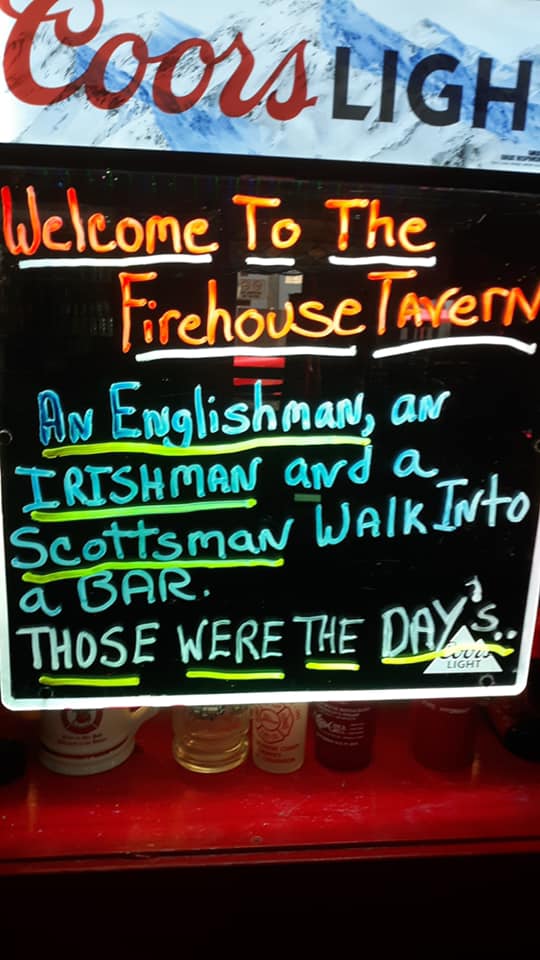 Coors LIGH
Welcome To The
Firehouse Tavern
An Englishman, an
IRISHMAN and a
Scottsman WALK INto
a BAR.
THOSE WERE THE DAY's..
Coors
LIGHT